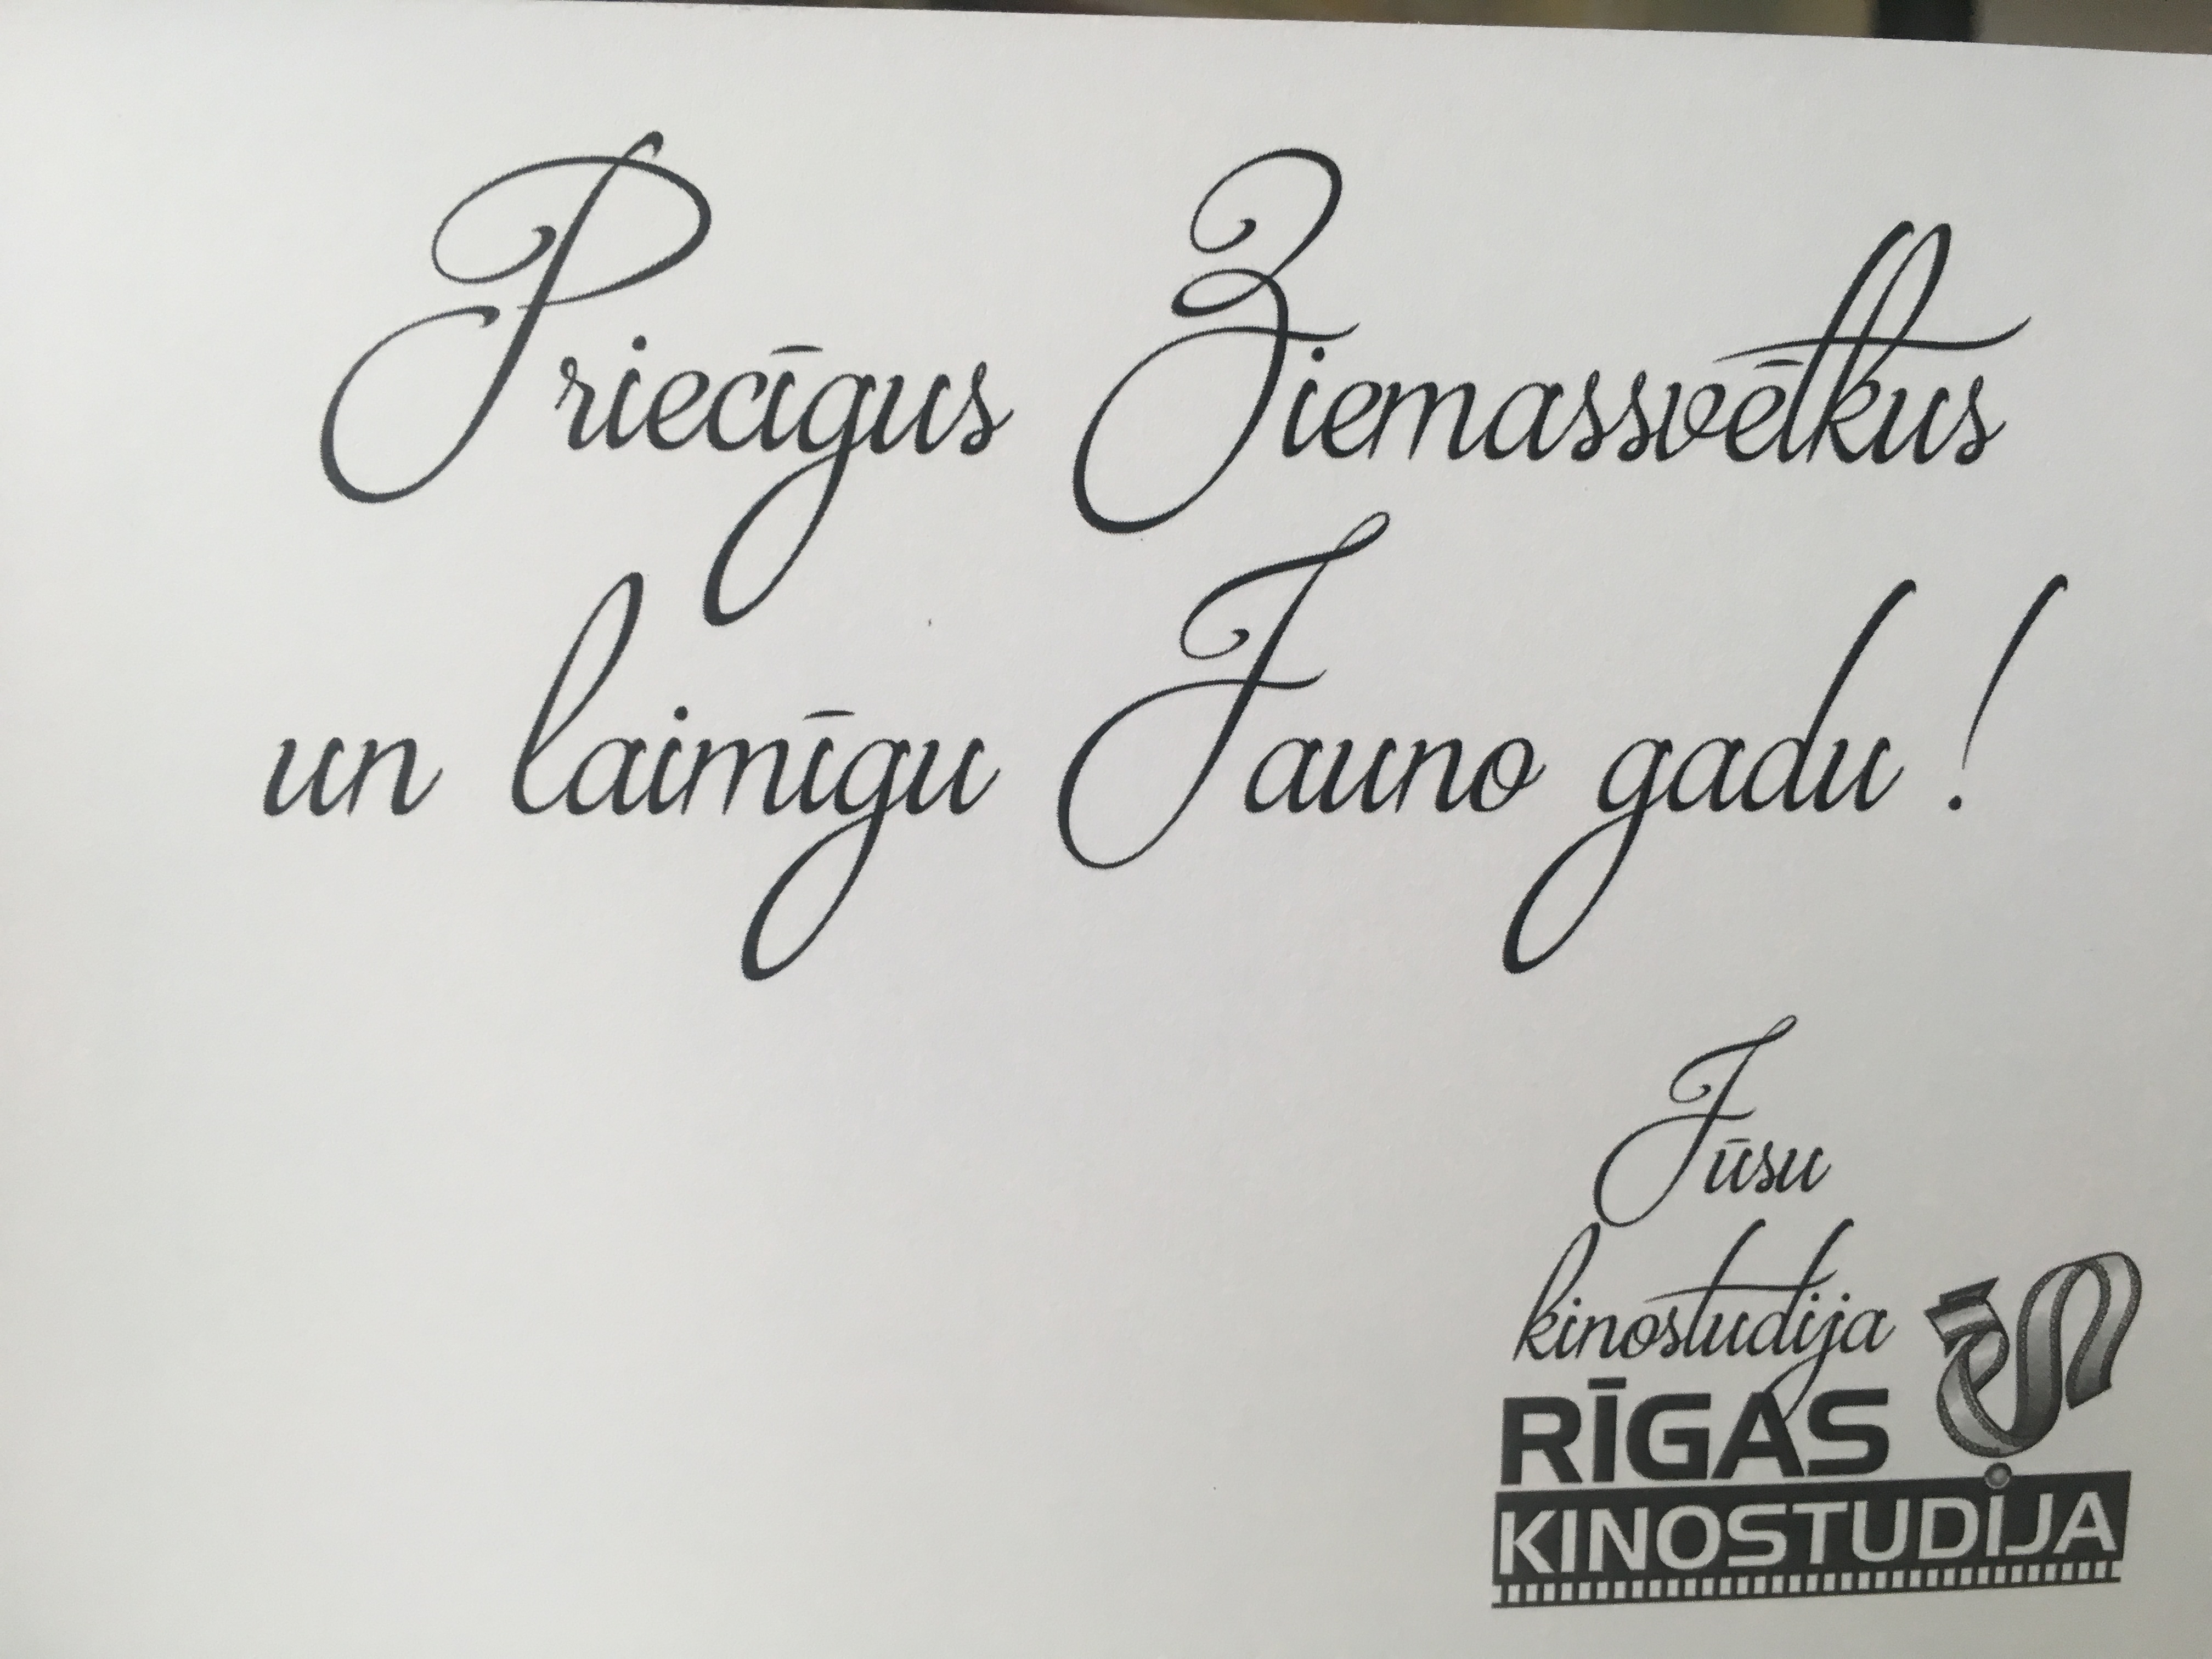 Priecīgus Ziemassvētkus
un laimīgu Jauno gadu !
Jūsu
kinostudija
RĪGAS
KINOSTUDIJA